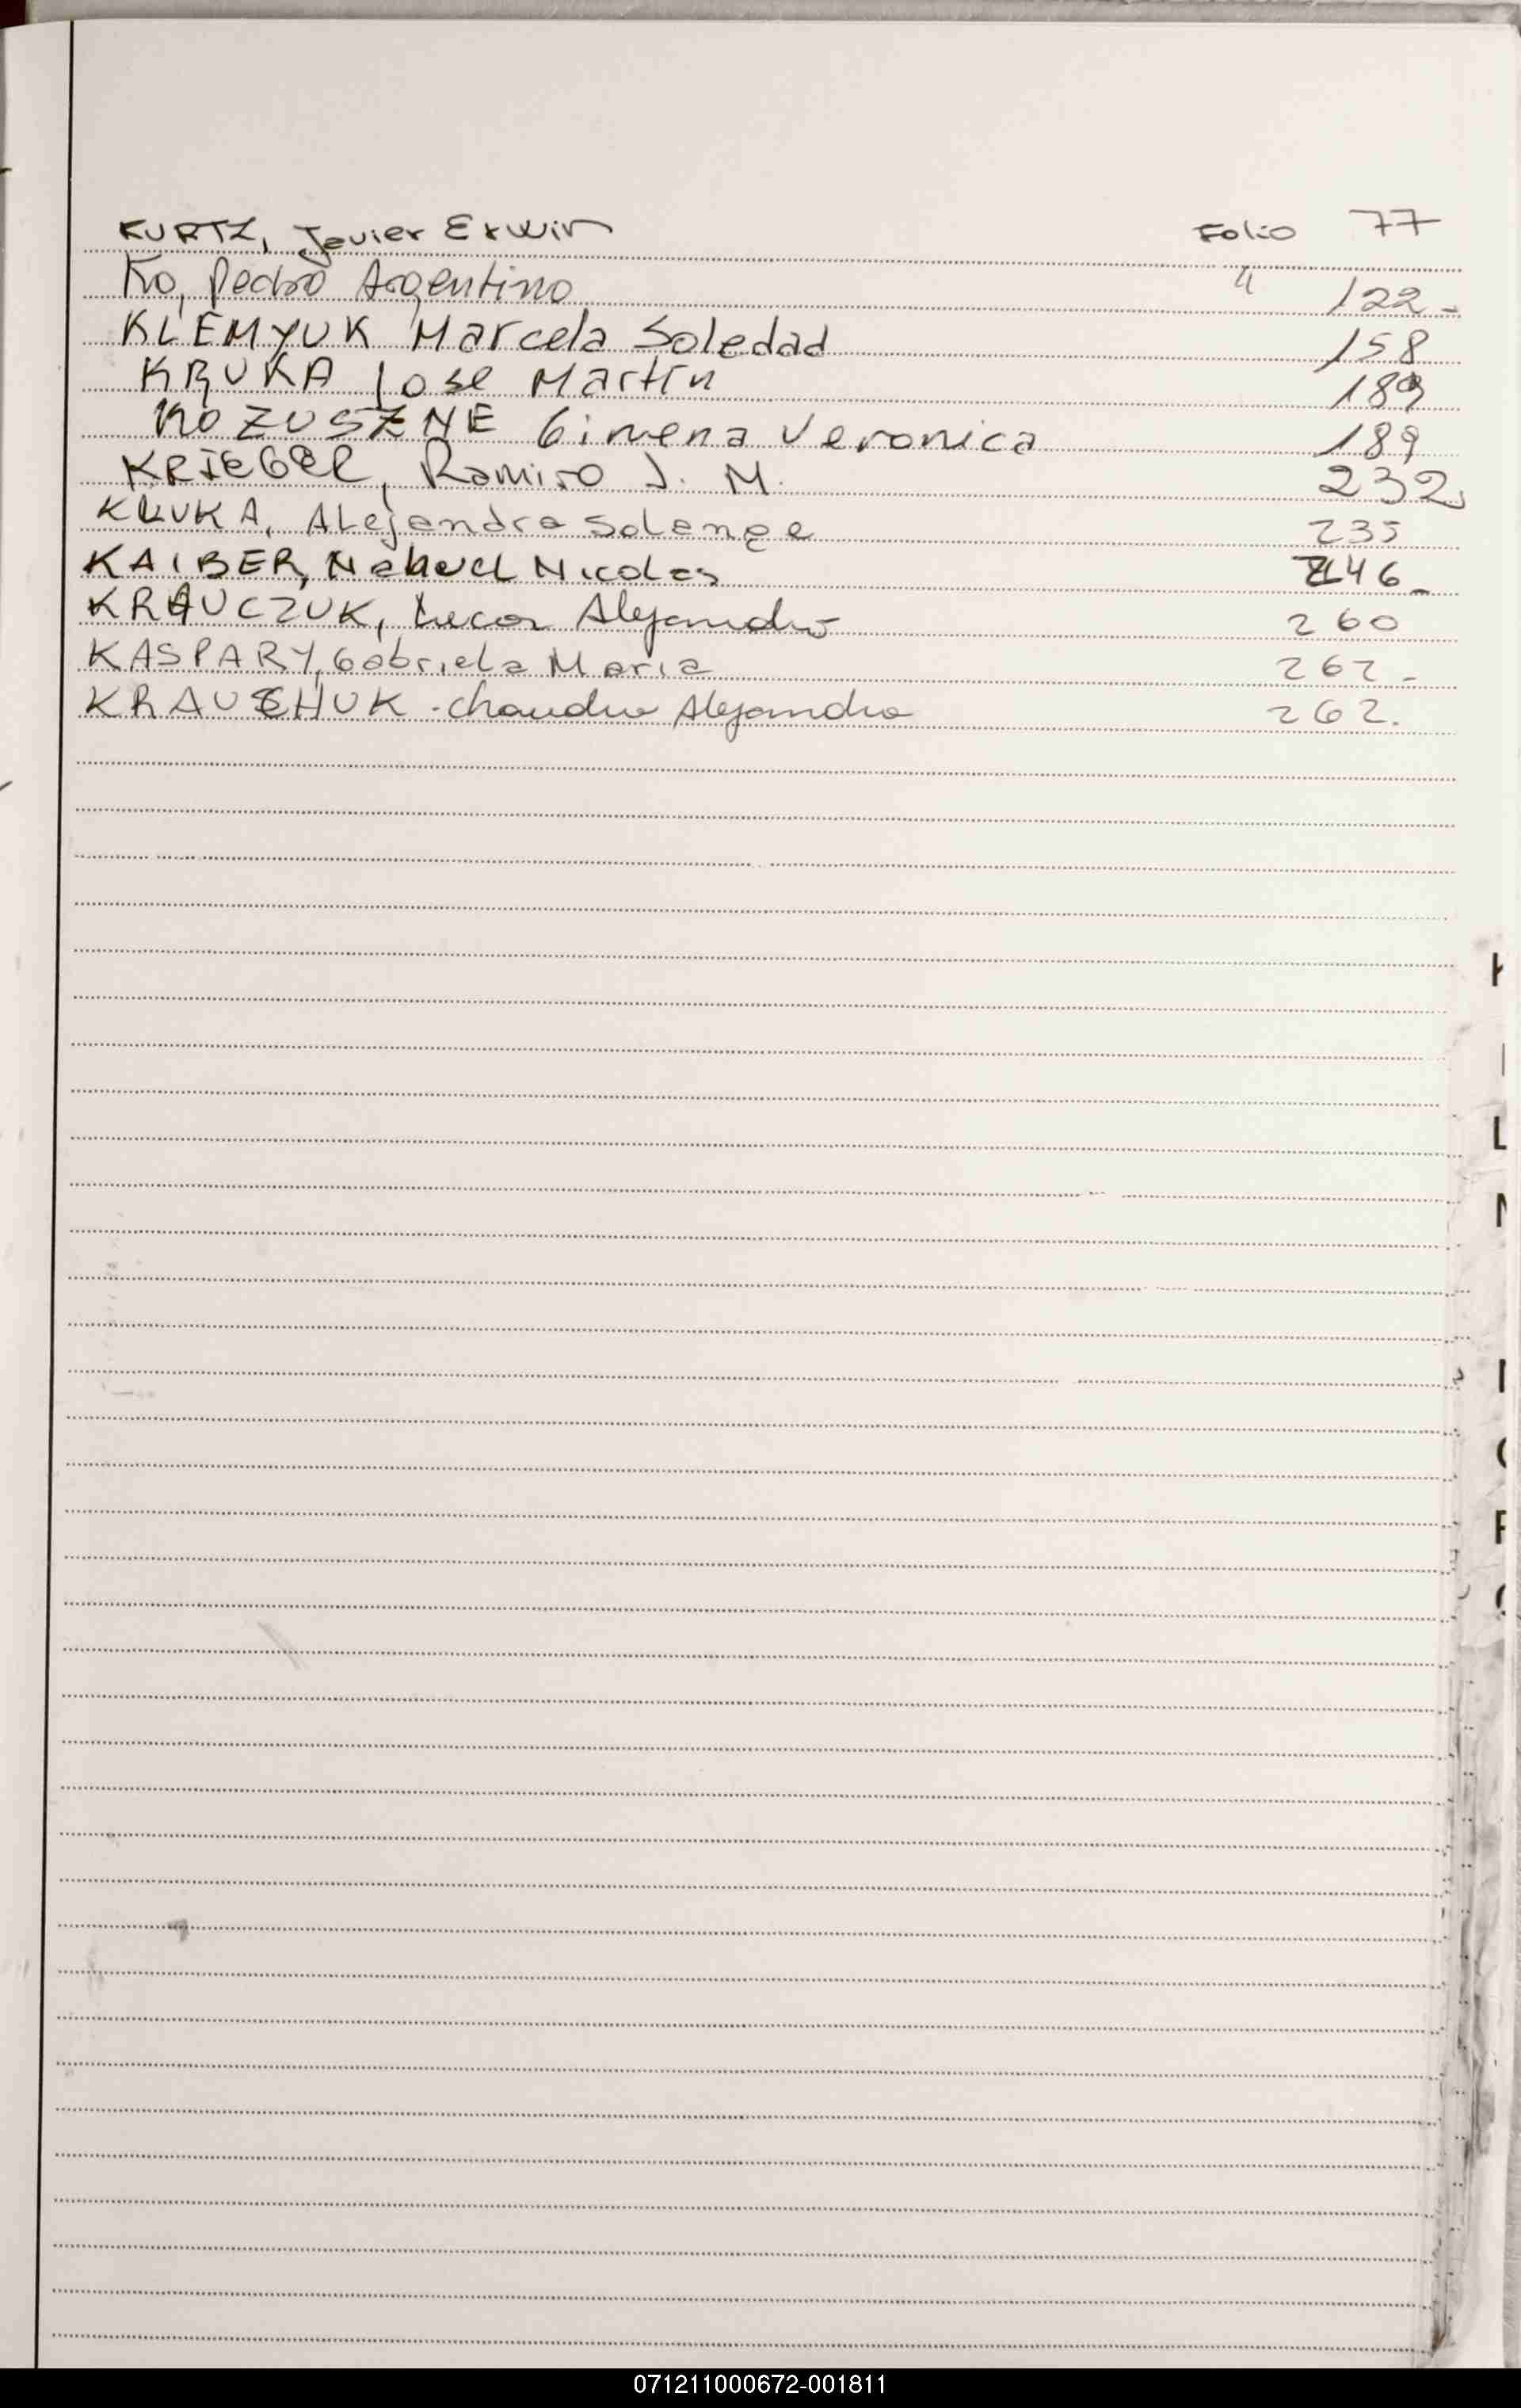 KURTZ, Javier Erwin Folio 77
Ko, Pedro Argentino " 122-
KLEMYUK Marcela Soledad 158
KRUKA Jose Martín 189
KOZUSZNE Gimena Veronica 189
KRIEGER, Ramiro J. M. 232
KRUKA, Alejandra Solange 235
KAIBER, Nahuel Nicolas 246-
KRAUCZUK, Lucas Alejandro 260
KASPARY, Gabriela Maria 262-
KRAUCHUK - Claudio Alejandro 262.
K
L
071211000672-001811